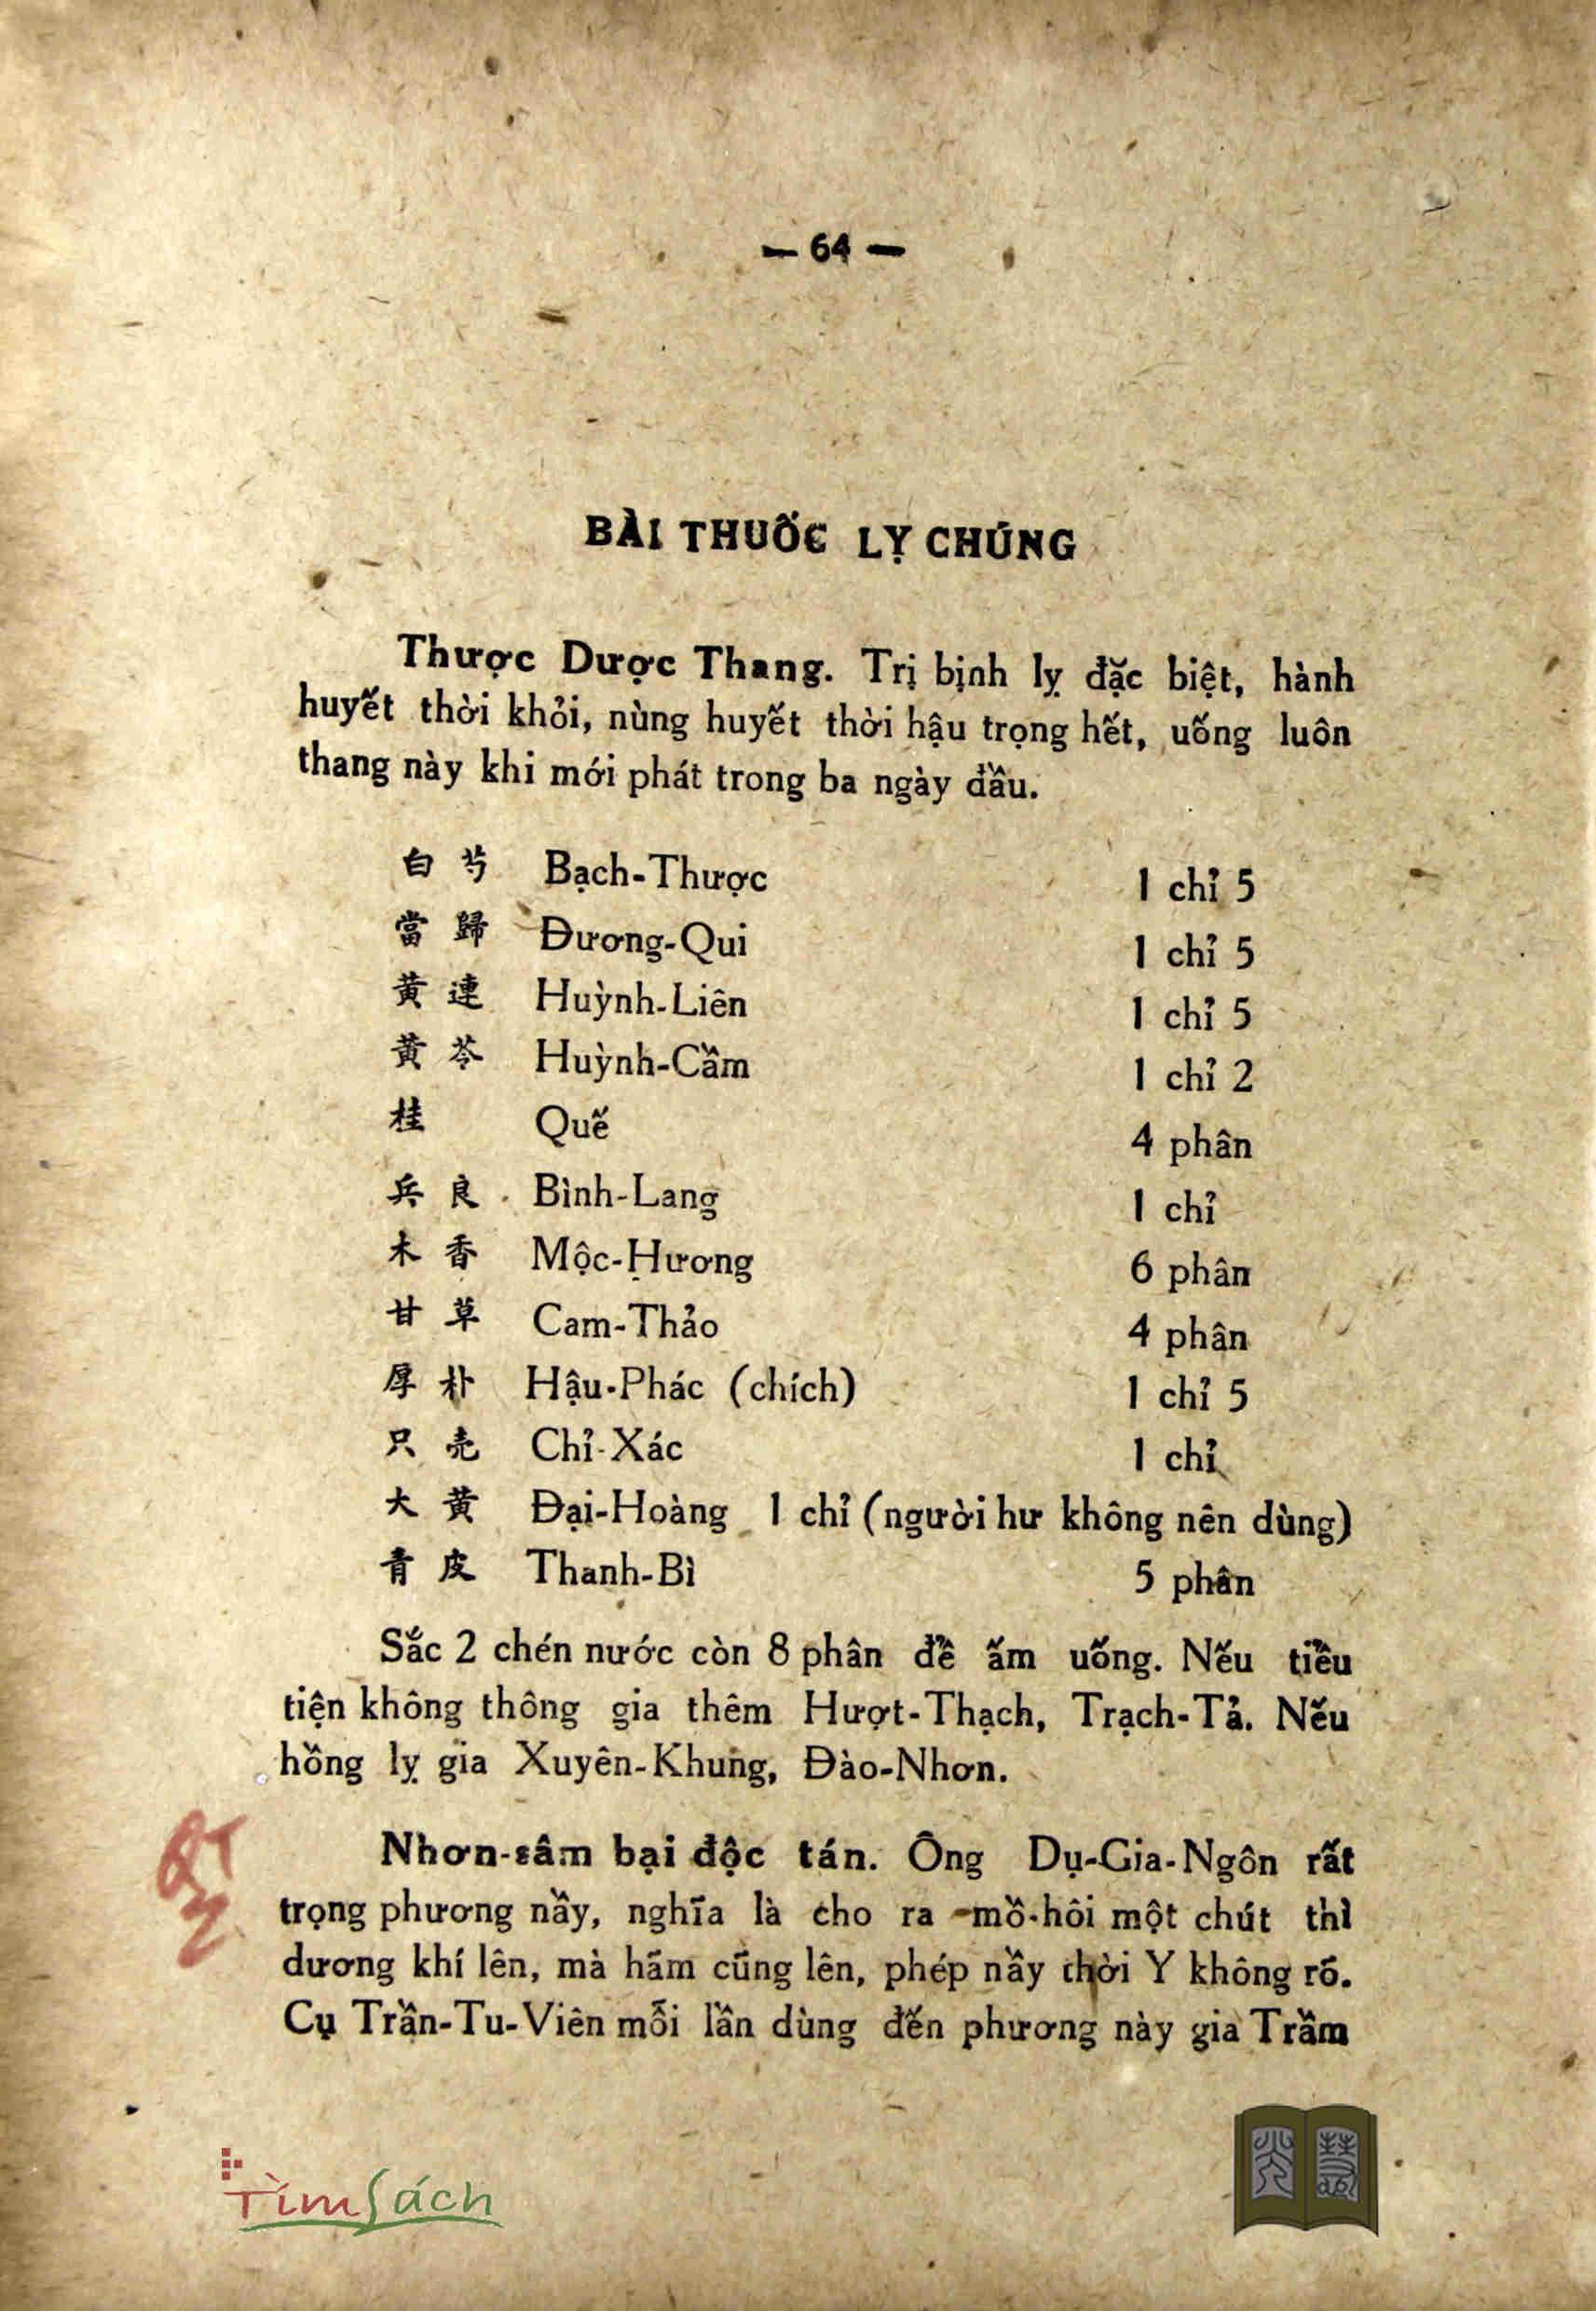 — 64 —
BÀI THUỐC LỴ CHỨNG
Thược Dược Thang. Trị bịnh lỵ đặc biệt, hành
huyết thời khỏi, nùng huyết thời hậu trọng hết, uống luôn
thang này khi mới phát trong ba ngày đầu.
白芍 Bạch-Thược 1 chỉ 5
當歸 Đương-Qui 1 chỉ 5
黄連 Huỳnh-Liên 1 chỉ 5
黄芩 Huỳnh-Cầm 1 chỉ 2
桂 Quế 4 phân
兵良 Bình-Lang 1 chỉ
木香 Mộc-Hương 6 phân
甘草 Cam-Thảo 4 phân
厚朴 Hậu-Phác (chích) 1 chỉ 5
只壳 Chỉ-Xác 1 chỉ
大黄 Đại-Hoàng 1 chỉ (người hư không nên dùng)
青皮 Thanh-Bì 5 phân
Sắc 2 chén nước còn 8 phân để ấm uống. Nếu tiểu
tiện không thông gia thêm Hượt-Thạch, Trạch-Tả. Nếu
hồng lỵ gia Xuyên-Khung, Đào-Nhơn.
Nhơn-sâm bại độc tán. Ông Dụ-Gia-Ngôn rất
trọng phương nầy, nghĩa là cho ra mồ-hôi một chút thì
dương khí lên, mà hãm cũng lên, phép nầy thời Y không rõ.
Cụ Trần-Tu-Viên mỗi lần dùng đến phương này gia Trầm
TìmSách